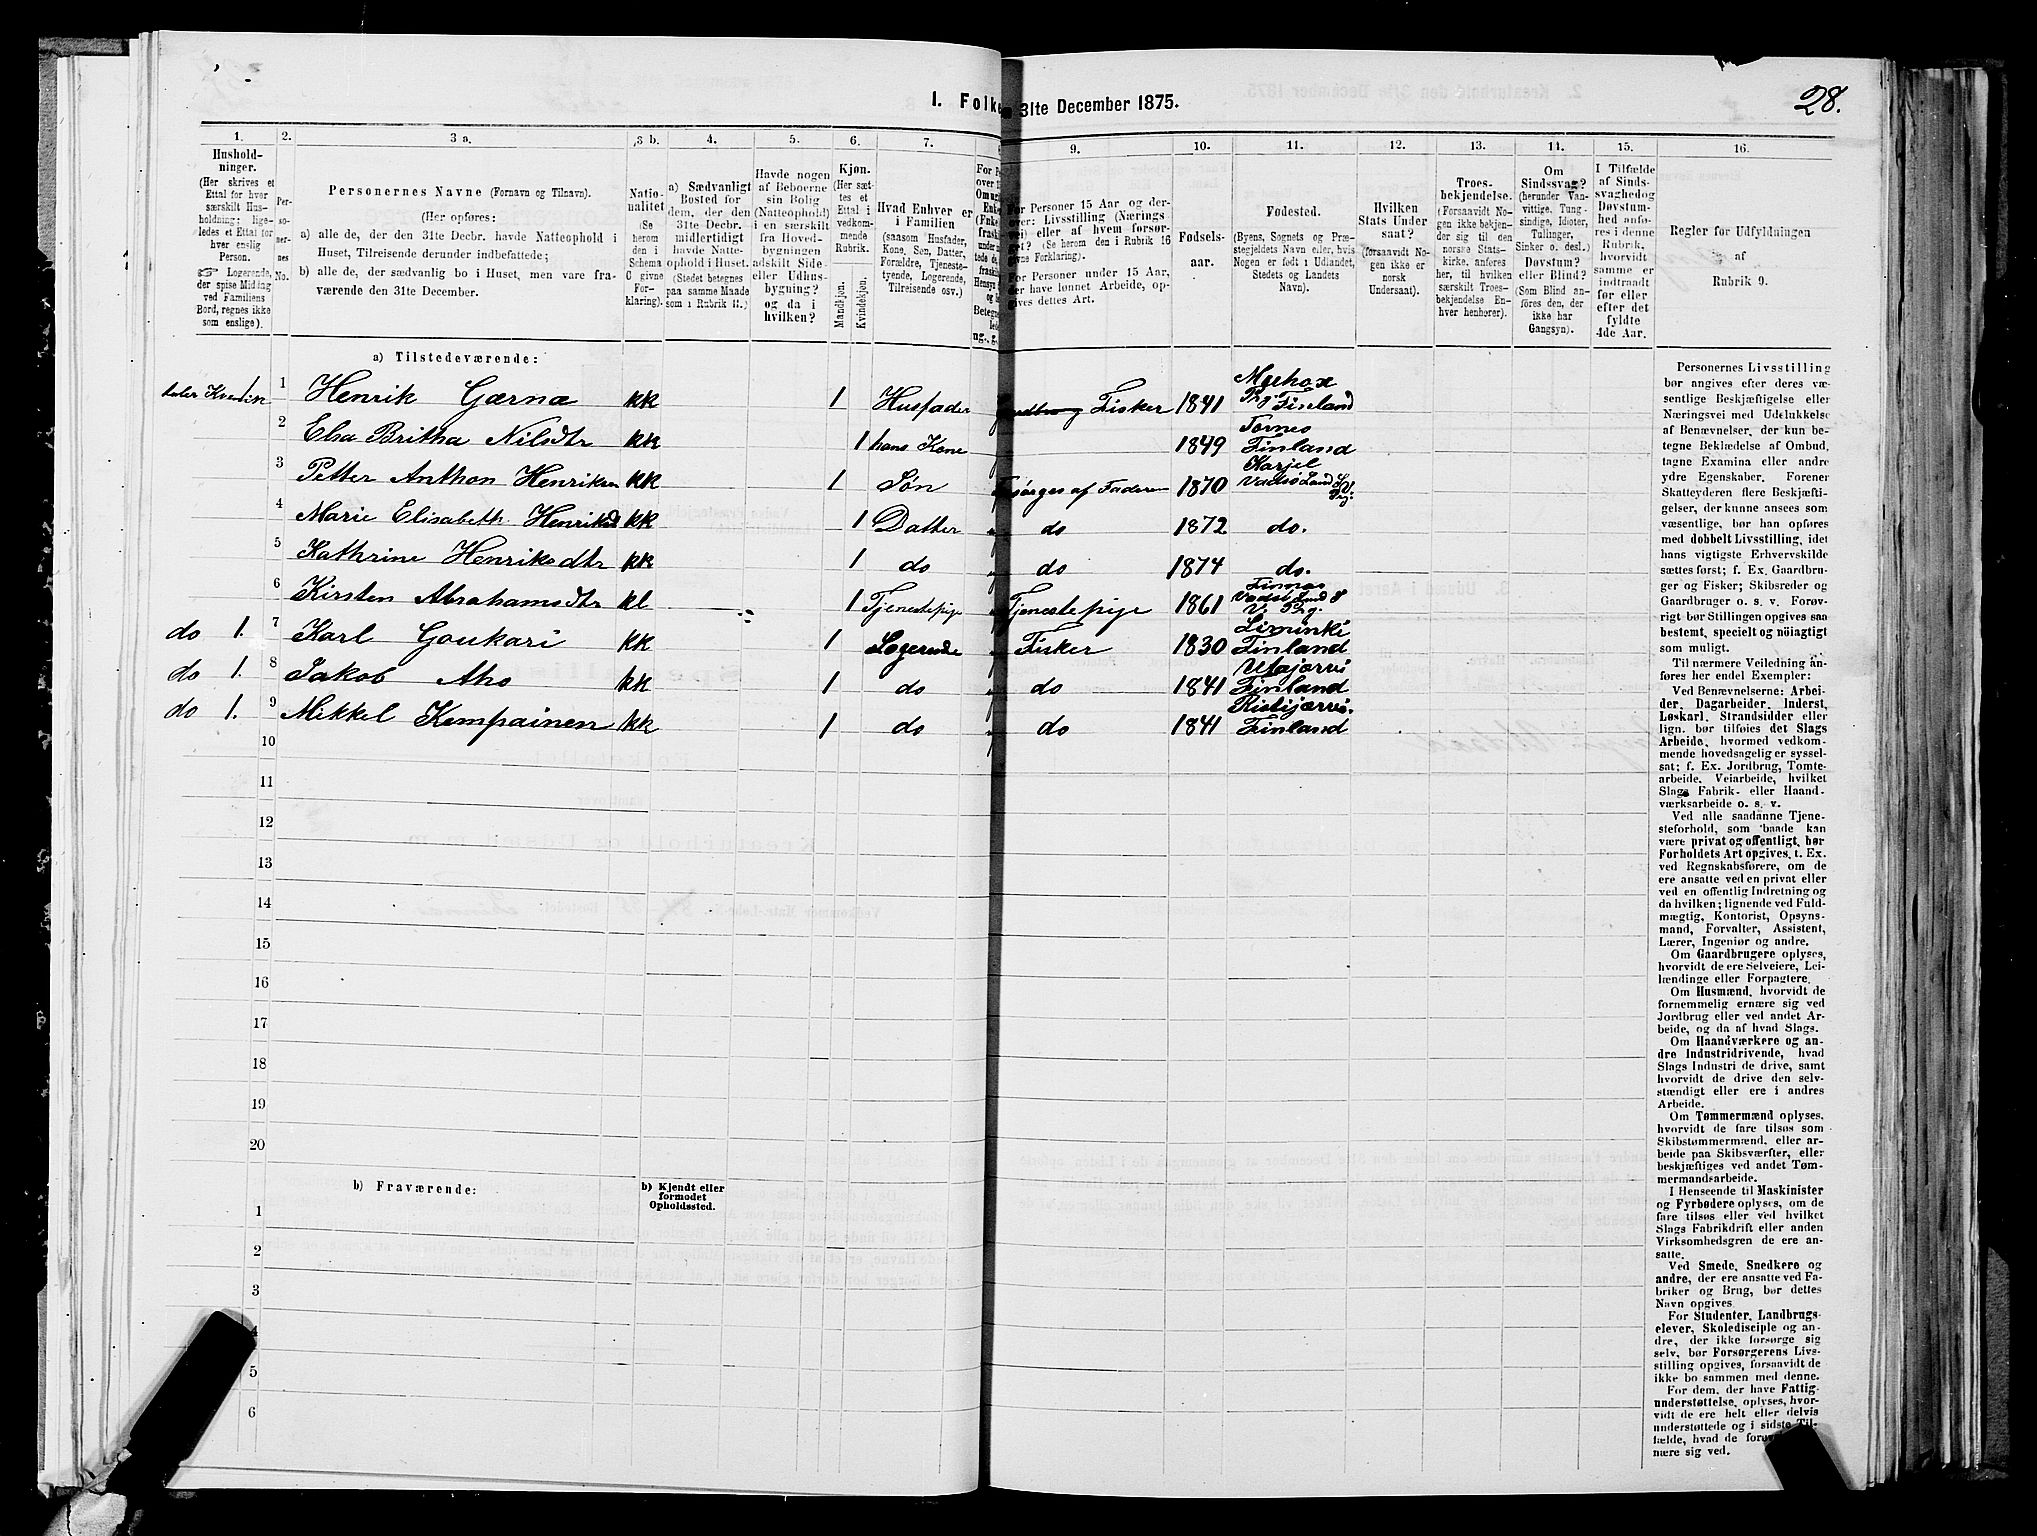 28.
1. Folke
31lte December 1875.
1.
2.
3 a.
3 b.
4.
5.
6.
7.
9.
10.
11.
12.
13.
14.
15.
16.
Hushold-
ninger.
(Her skrives et
Ettal for hver
særskilt Hus-
holdning; lige-
ledes et Ettal for
hver enslig
Person.
☞ Logerende,
der spise Middag
ved Familiens
Bord, regnes ikke
som enslige).
Per-
so-
ner-
nes
No.
Personernes Navne (Fornavn og Tilnavn).
(Her opføres:
a) alle de, der den 31te Decbr. havde Natteophold i
Huset, Tilreisende derunder indbefattede;
b) alle de, der sædvanlig bo i Huset, men vare fra-
værende den 31te December.
Natio-
nalitet
(Se
herom
den i
Schema
C givne
For-
klaring).
a) Sædvanligt
Bosted for
dem, der den
31te Decbr.
midlertidigt
havde Natte-
ophold i Huset.
(Stedet betegnes
paa samme Maade
som i Rubrik 11.)
Havde nogen
af Beboerne
sin Bolig
(Natteophold)
i en særskilt
fra Hoved-
bygningen
adskilt Side-
eller Udhus-
bygning?
og da i
hvilken?
Kjøn.
(Her sæt-
tes et
Ettal i
vedkom-
mende
Rubrik.
Mandkjøn.
Kvindekjøn.
Hvad Enhver er
i Familien
(saasom Husfader,
Kone, Søn, Datter,
Forældre, Tjeneste-
tyende, Logerende,
Tilreisende osv.)
For Personer 15 Aar og der-
over: Livsstilling (Nærings-
vei) eller af hvem forsør-
get? (Se herom den i Rubrik 16
givne Forklaring).
For Personer under 15 Aar,
der have lønnet Arbeide, op-
gives dettes Art.
Fødsels-
aar.
Fødested.
(Byens, Sognets og Præ-
stegjeldets Navn eller, hvis
Nogen er født i Udlandet,
Stedets og Landets
Navn).
Hvilken
Stats Under
saat?
(forsaavidt No-
gen ikke er
norsk
Undersaat).
Troes-
bekjendelse.
(Forsaavidt No-
gen ikke bekjen-
der sig til den
norske Stats-
kirke, anføres
her, til hvilken
særskilt Troes-
bekjendelse En-
hver henhører).
Om
Sindssvag?
(herunder Van-
vittige, Tung-
sindige, Idioter,
Tullinger,
Sinker o. desl.)
Døvstum?
eller Blind?
(Som Blind an-
føres den, der
ikke har
Gangsyn).
I Tilfælde
af Sinds-
svaghed og
Døvstum-
hed anfø-
res i denne
Rubrik,
hvorvidt
samme er
indtraadt
før eller
efter det
fyldte
4de Aar.
Regler for Udfyldningen
af
Rubrik 9.
a) Tilstedeværende:
1. 1 Henrik Gærna kk 1 Husfader Fisker 1841 Finland
2 Elsa Britha Nilsdtr kk 1 hans Kone 1849 Tornes Finland
3 Petter Anthon Henriksen kk 1 Søn Forsørges af Faderen 1870 Karjel Vadsø Land S
4 Marie Elisabeth Henriksd kk 1 Datter do 1872 do.
5 Kathrine Henriksdtr kk 1 do do 1874 do.
6 Kirsten Abrahamsdtr kl 1 Tjenestepige Tjenestepige 1861 Vadsø Land S
do 1. 7 Karl Goukari kk 1 Logerende Fisker 1830 Liminki Finland
do 1. 8 Jakob Aho kk 1 do do 1841 Utajærvi Finland
do 1. 9 Mikkel Kempainen kk 1 do do 1841 Ristijærvi. Finland
10
11
12
13
14
15
16
17
18
19
20
b) Fraværende:
b) Kjendt eller
formodet
Opholdssted.
1
2
3
4
5
6
Personernes Livsstilling
bør angives efter deres væ-
sentlige Beskjæftigelse eller
Næringsvei med Udelukkelse
af Benævnelser, der kun be-
tegne Beklædelse af Ombud,
tagne Examina eller andre
ydre Egenskaber. Forener
Skatteyderen flere Beskjæfti-
gelser, der kunne ansees som
væsentlige, bør han opføres
med dobbelt Livsstilling, idet
hans vigtigste Erhvervskilde
sættes først; f. Ex. Gaardbru-
ger og Fisker; Skibsreder og
Gaardbruger o. s. v. Forøv-
rigt bør Stillingen opgives saa
bestemt, specielt og nøiagtigt
som muligt.
Til nærmere Veiledning an-
føres her endel Exempler:
Ved Benævnelserne: Arbei-
der, Dagarbeider, Inderst,
Løskarl, Strandsidder eller
lign. bør tilføies det Slags
Arbeide, hvormed vedkom-
mende hovedsagelig er syssel-
sat; f. Ex. Jordbrug, Tomte-
arbeide, Veiarbeide, hvilket
Slags Fabrik- eller Haand-
værksarbeide o. s. v.
Ved alle saadanne Tjene-
steforhold, som baade kan
være privat og offentligt, bør
Forholdets Art opgives, t. Ex.
ved Regnskabsførere, om de
ere ansatte ved en privat eller
ved en offentlig Indretning og
da hvilken; lignende ved Fuld-
mægtig, Kontorist, Opsyns-
mand, Forvalter, Assistent,
Lærer, Ingeniør og andre.
Om Gaardbrugere oplyses,
hvorvidt de ere Selveiere, Lei-
lændinge eller Forpagtere.
Om Husmænd, hvorvidt de
fornemmelig ernære sig ved
Jordbrug eller ved andet Ar-
beide, og da af hvad Slags.
Om Haandværkere og an-
dre Industridrivende, hvad
Slags Industri de drive, samt
hvorvidt de drive den selv-
stændigt eller ere i andres
Arbeide.
Om Tømmermænd oplyses,
hvorvidt de fare tilsøs som
Skibstømmermænd, eller ar-
beide paa Skibsværfter, eller
beskjæftiges ved andet Tøm-
mermandsarbeide.
I Henseende til Maskinister
og Fyrbødere oplyses, om de
fare tilsøs eller ved hvilket
Slags Fabrikdrift eller anden
Virksomhedsgren de ere an-
satte.
Ved Smede, Snedkere og
andre, der ere ansatte ved Fa-
briker og Brug, bør dettes
Navn opgives.
For Studenter, Landbrugs-
elever, Skoledisciple og an-
dre, der ikke forsørge sig
selv, bør Forsørgerens Livs-
stilling opgives, forsaavidt de
ikke bo sammen med denne.
For dem, der have Fattig-
understøttelse, oplyses, hvor-
vidt de ere helt eller delvis
understøttede og i sidste Til-
fælde, hvad de
nære sig ved.